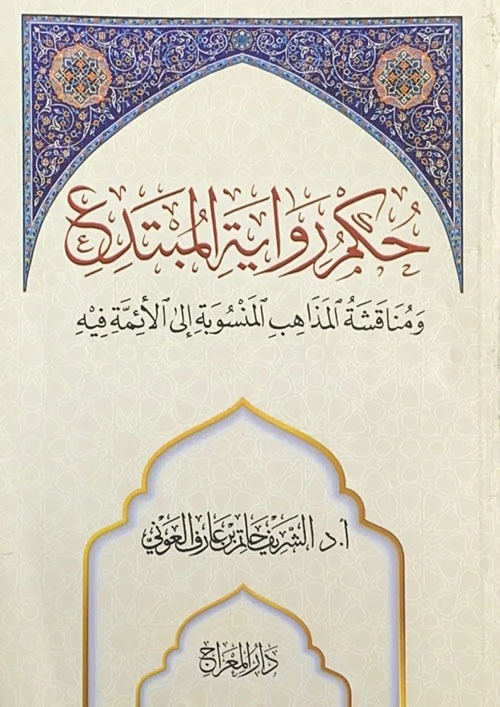 حُكْمُ رِوَايَةِ المُبْتَدِعِ
وَمُنَاقَشَةُ المَذَاهِبِ المَنْسُوبَةِ إِلَى الأَئِمَّةِ فِيْهِ
أ.د الشَّرِيْف حَاتِم بْن عَارِف العَوْنِي
دَارُ المِعْرَاجِ